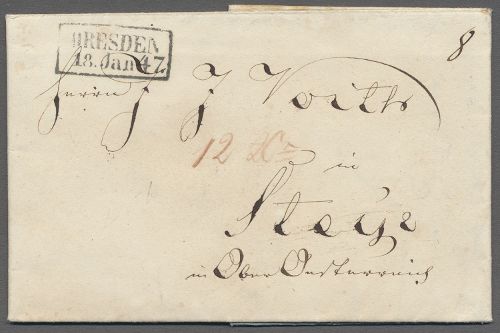 DRESDEN
18. Jan 47.
8
Herrn J J Voith
12 Xr
in
Steyr
in Ober Oesterreich